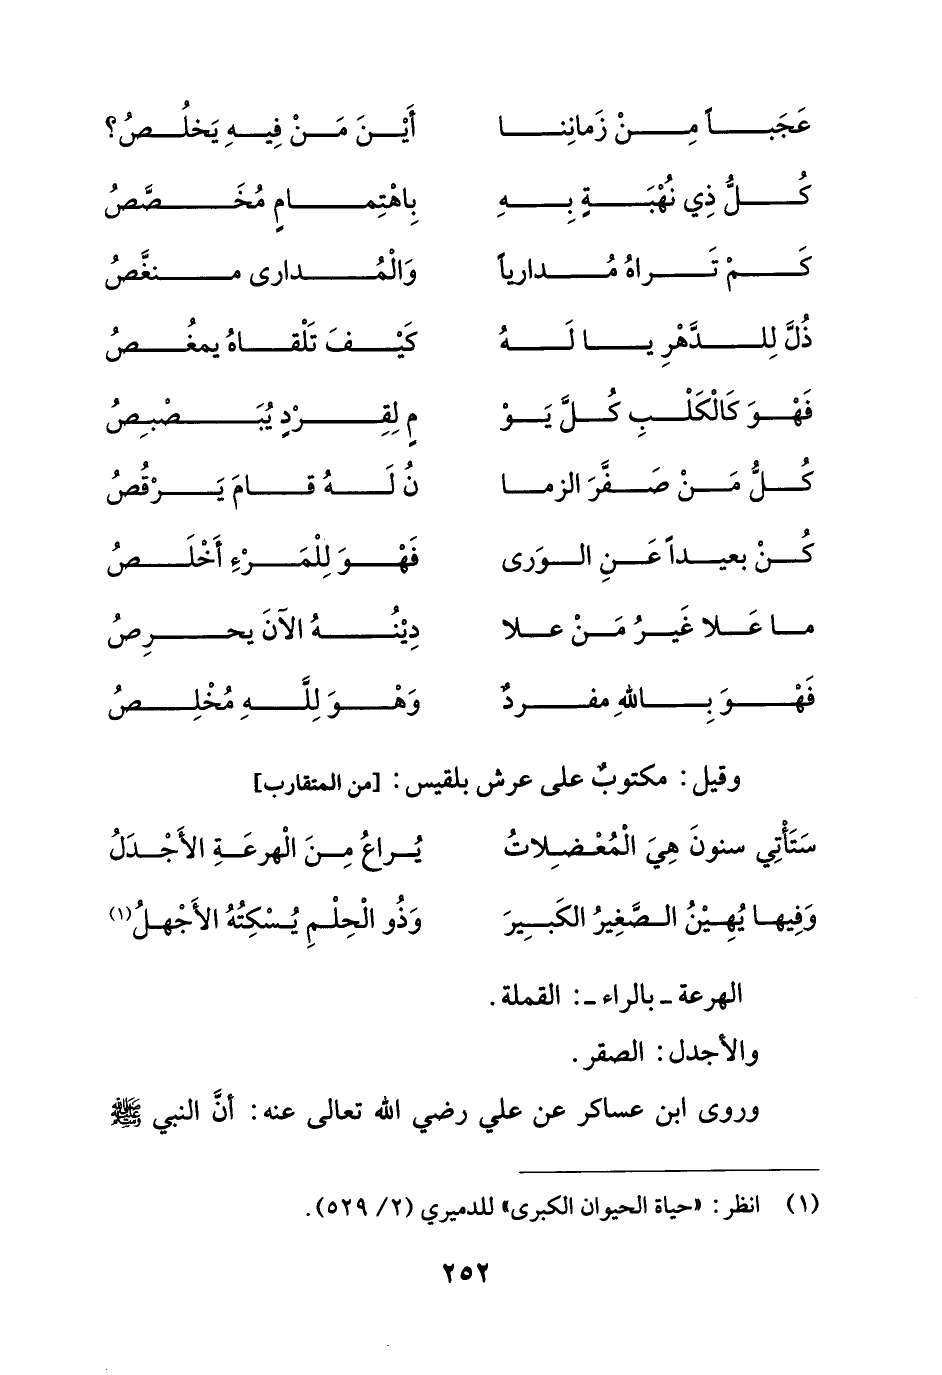 عَجَبـاً مِـنْ زَمانِنـا أَيْـنَ مَـنْ فِيـهِ يَخلُـصُ؟
كُـلُّ ذِي نُهْبَـةٍ بِـهِ بِاهْتِمـامٍ مُخَـصَّصُ
كَـمْ تَـراهُ مُـدارياً وَالْمُـدارى مـنغَّصُ
ذُلَّ لِلـدَّهْرِ يـا لَـهُ كَيْـفَ تَلْقـاهُ يمغُـصُ
فَهْـوَ كَالْكَلْـبِ كُـلَّ يَـوْ مٍ لِقِـرْدٍ يُبَـصْبِصُ
كُـلُّ مَـنْ صَـفَّرَ الزمـا نُ لَـهُ قـامَ يَـرْقُصُ
كُـنْ بعيـداً عَـنِ الـوَرى فَهْـوَ لِلْمَـرْءِ أَخْلَـصُ
مـا عَـلا غَيـرُ مَـنْ عـلا دِيْنُـهُ الآنَ يحـرِصُ
فَهْـوَ بِـاللهِ مفـردٌ وَهْـوَ لِلَّـهِ مُخْلِـصُ
وقيل: مكتوبٌ على عرش بلقيس: [من المتقارب]
سَتَأْتِي سنونَ هِيَ الْمُعْـضِلاتُ يُـراعُ مِـنَ الْهرعَـةِ الأَجْـدَلُ
وَفِيهـا يُهِيْنُ الـصَّغِيرُ الكَبِـيرَ وَذُو الْحِلْـمِ يُـسْكِتُهُ الأَجْهـلُ(١)
الهرعة ـ بالراء ـ: القملة.
والأجدل: الصقر.
وروى ابن عساكر عن علي رضي الله تعالى عنه: أنَّ النبي ﷺ
(١) انظر: «حياة الحيوان الكبرى» للدميري (٢/ ٥٢٩).
٢٥٢